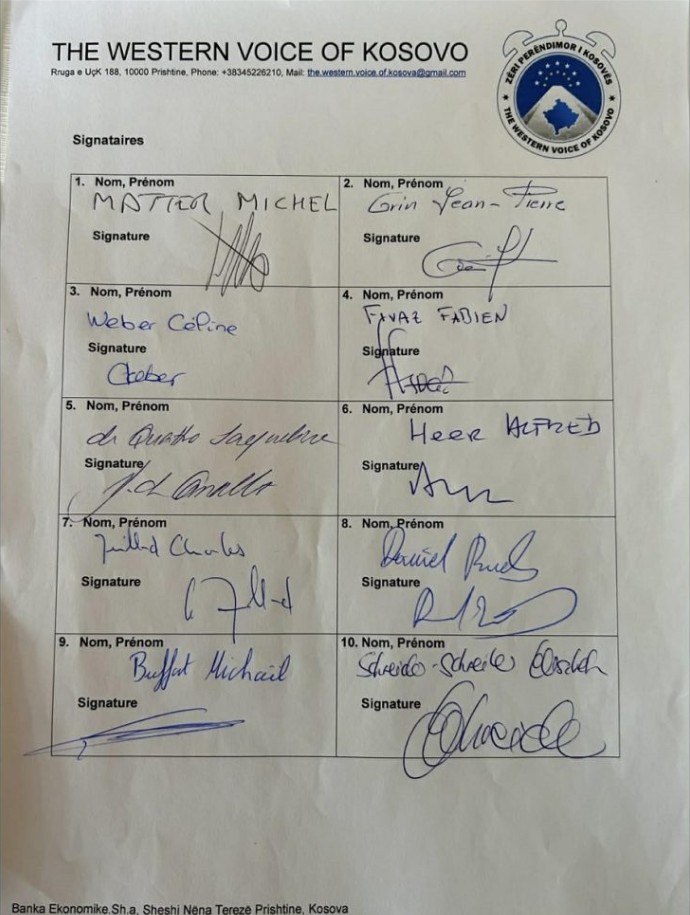 THE WESTERN VOICE OF KOSOVO
Rruga e UçK 188, 10000 Prishtine, Phone: +38345226210, Mail: the.western.voice.of.kosova@gmail.com
ZËRI PERËNDIMOR I KOSOVËS
THE WESTERN VOICE OF KOSOVO
Signataires
1. Nom, Prénom
MATTER MICHEL
Signature
2. Nom, Prénom
Grin Jean-Pierre
Signature
3. Nom, Prénom
Weber Céline
Signature
CWeber
4. Nom, Prénom
FAVAZ FABIEN
Signature
5. Nom, Prénom
de Quattro Jacqueline
Signature
6. Nom, Prénom
HEER ALFRED
Signature
7. Nom, Prénom
Juillard Charles
Signature
8. Nom, Prénom
Daniel
Signature
9. Nom, Prénom
Buffat Michaël
Signature
10. Nom, Prénom
Signature
Banka Ekonomike.Sh.a. Sheshi Nëna Terezë Prishtine, Kosova